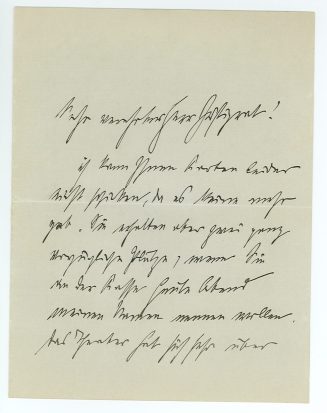 Sehr verehrter Herr Hofrat!
ich kann Ihnen Karten leider
nicht schicken, da es keine mehr
gab. Sie erhalten aber zwei ganz
vorzügliche Plätze, wenn Sie
an der Kasse heute Abend
meinen Namen nennen wollen.
Das Theater hat sich sehr über